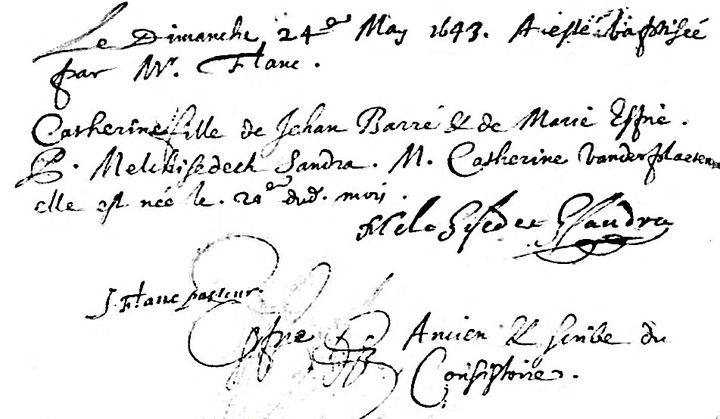 Le Dimanche 24e May 1643. A este baptisée
par Mr. Flanc.
Catherine fille de Jehan Barré & de Marie Espie.
P. Melchisedech Sandra. M. Catherine vander plaetsen
elle est née le 20e dud. mois.
Melchisedec Sandra
J. Flanc pasteur.
Ancien & scribe du
Consistoire.